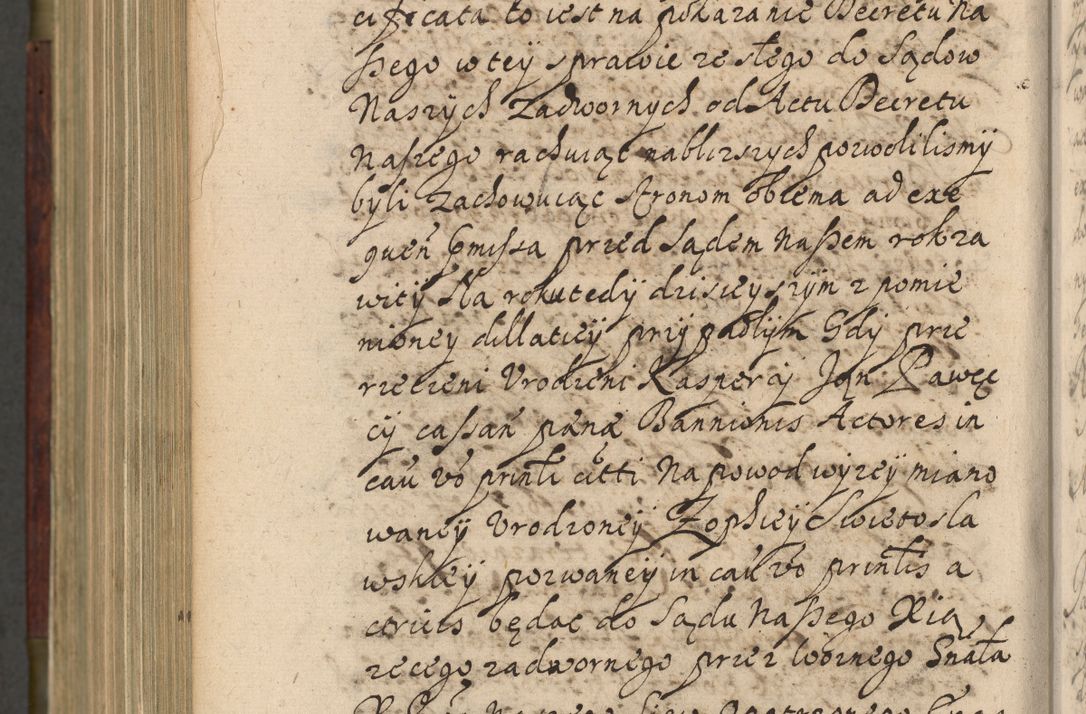 cificata to iest na pokazanie Decretu na
szego w tey sprawie zesłego do Sądow
Naszych Zadwornych od Actu Decretu
naszego rachuiąc nablizszych pozwolilismÿ
byli Zachowuiąc stronom obiema ad exe
quen̄ pmissa przed Sądem naszem rok za
witÿ Na roku tedÿ dzisieyszÿm z pomie
nioney dillatieÿ przÿpadłÿm Gdÿ prze
rzeczeni Vrodzeni Kasper cÿ Jąn Pawę
cÿ cassan̄ pænæ Bannionis Actores in
caū vō prinłi citti na powod wÿzeÿ miano
waneÿ Vrodzoneÿ Zophieÿ Swietosla
wskieÿ pozwaneÿ in caū vō prinłis a
ctricis będąc do Sądu naszego Xią
zecego zadwornego przez woznego Snała